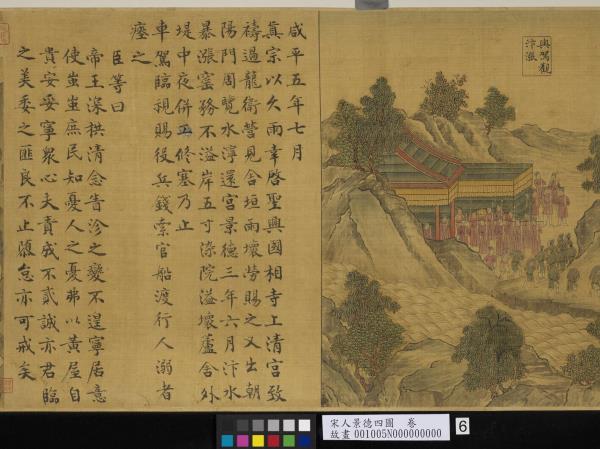 輿駕觀
汴漲
咸平五年七月
眞宗以久雨幸啓聖興國相寺上清宮致
禱過龍衛營見舍垣雨壞勞賜之又出朝
陽門周覽水濘還宮景德三年六月汴水
暴漲 務不溢岸五寸 院溢壞廬舍外
堤中夜併工修塞乃止
車駕臨視賜役兵錢索官船渡行人溺者
瘞之
臣等曰
帝王深拱清念眚沴之變不遑寧居意
使蚩蚩庶民知憂人之憂弗以黃屋自
貴安安寧衆心夫責成不貳誠亦君臨
之美委之匪良不止隳怠亦可戒矣
宋人景德四圖 卷
故畫 001005N000000000
6